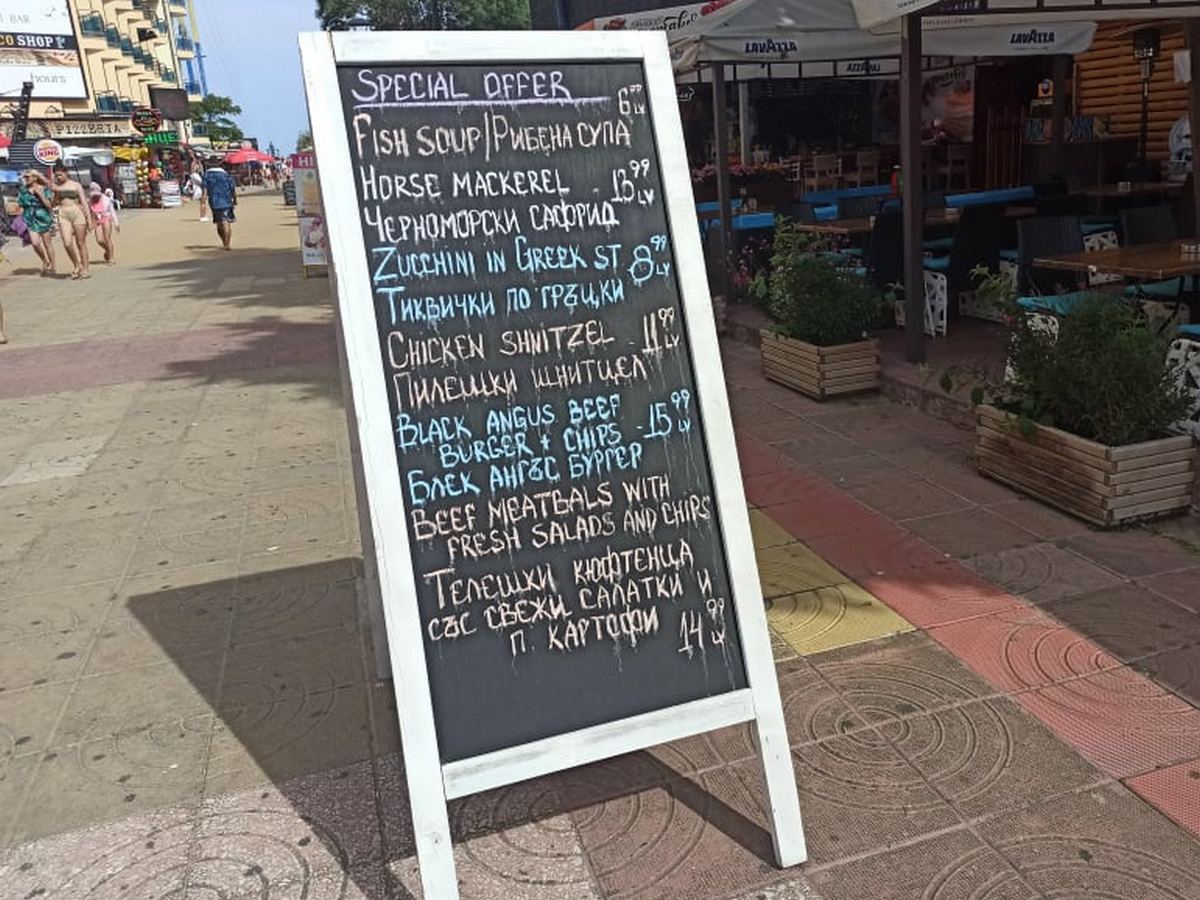 BAR
CO SHOP
hours
PIZZERIA
KING
LAVAZZA
LAVAZZA
SPECIAL OFFER
FISH SOUP/РИБЕНА СУПА 6⁹⁹ LV
HORSE MACKEREL - 13⁹⁹ LV
ЧЕРНОМОРСКИ САФРИД
ZUCCHINI IN GREEK ST 8⁹⁹ LV
ТИКВИЧКИ ПО ГРЪЦКИ
CHICKEN SHNITZEL - 11⁹⁹ LV
ПИЛЕШКИ ШНИТЦЕЛ
BLACK ANGUS BEEF
BURGER + CHIPS - 15⁹⁹ LV
БЛЕК АНГЪС БУРГЕР
BEEF MEATBALS WITH
FRESH SALADS AND CHIPS
ТЕЛЕШКИ КЮФТЕНЦА
СЪС СВЕЖИ САЛАТКИ И
П. КАРТОФИ 14⁹⁹ LV